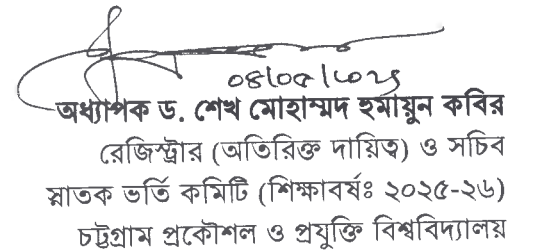 অধ্যাপক ড. শেখ মোহাম্মদ হুমায়ুন কবির
রেজিস্ট্রার (অতিরিক্ত দায়িত্ব) ও সচিব
স্নাতক ভর্তি কমিটি (শিক্ষাবর্ষঃ ২০২৫-২৬)
চট্টগ্রাম প্রকৌশল ও প্রযুক্তি বিশ্ববিদ্যালয়